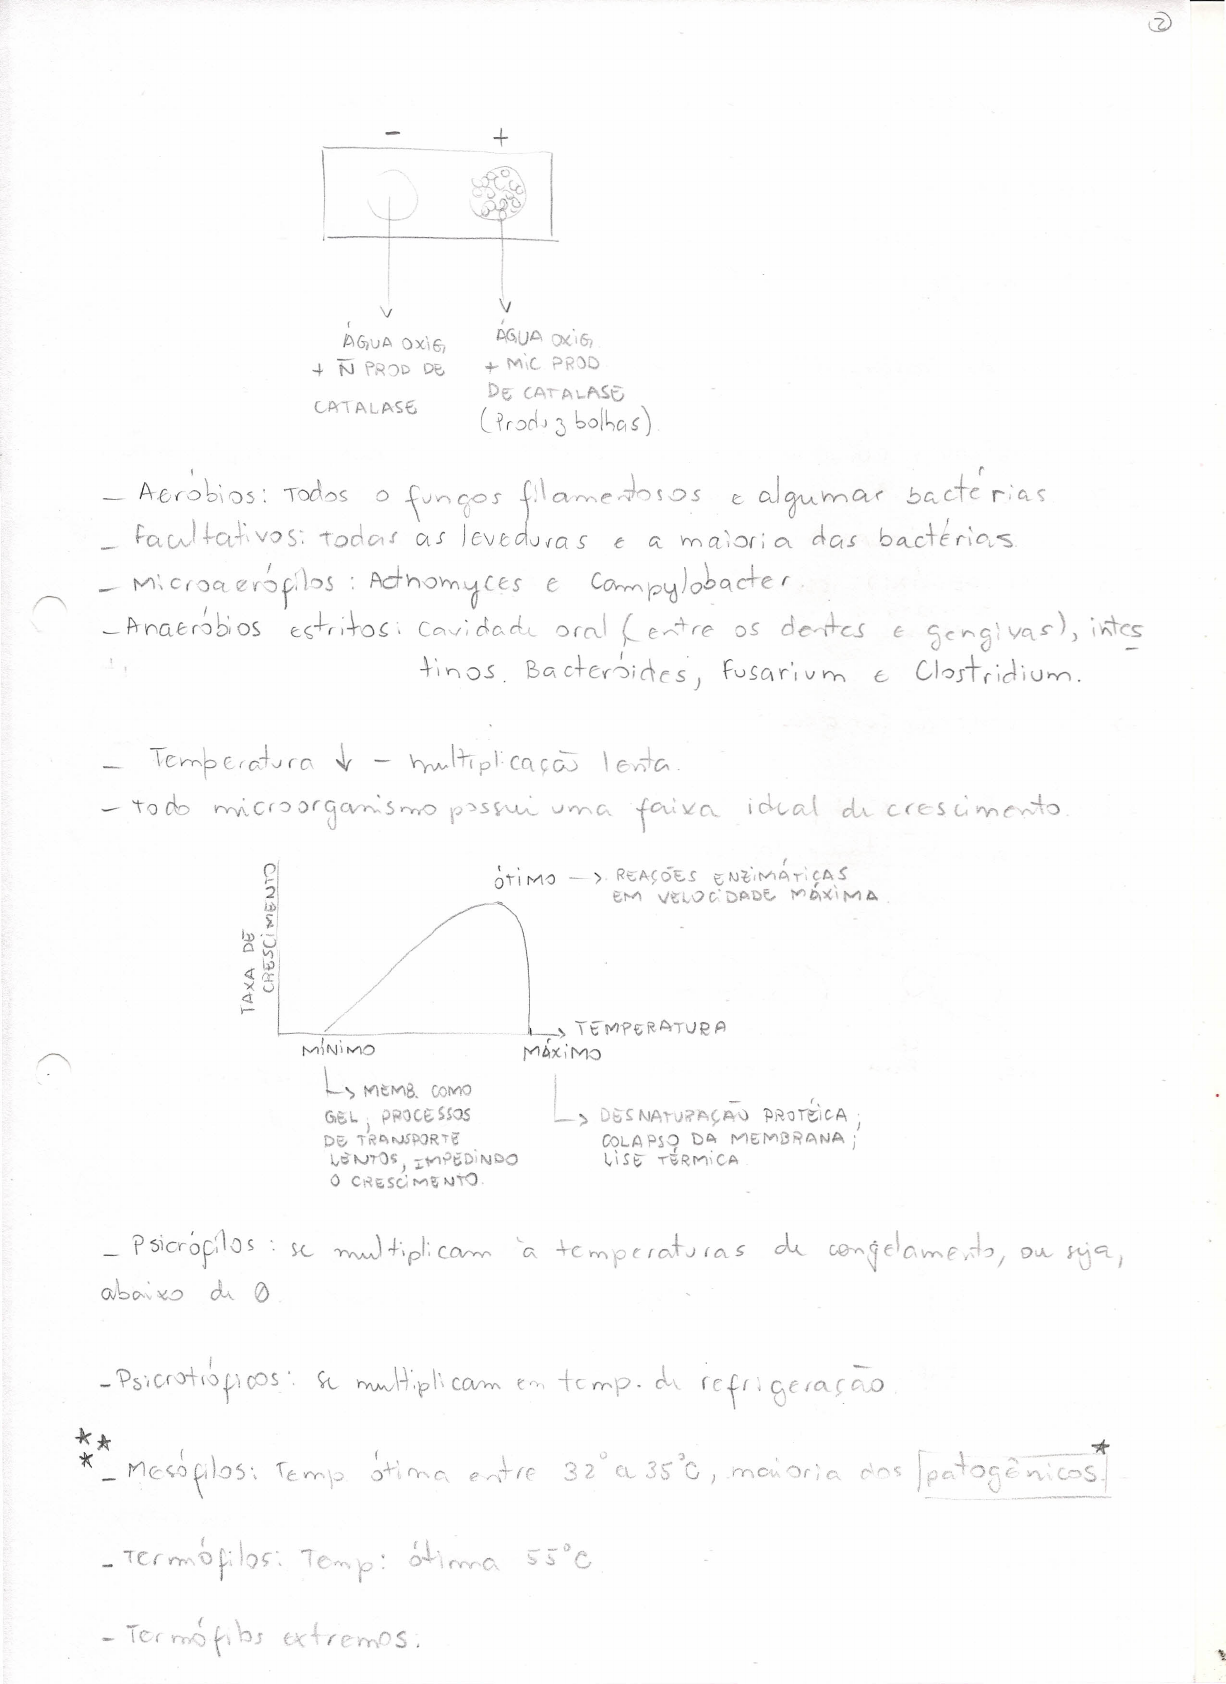 2
- +
ÁGUA OXIG,
+ Ñ PROD DE
CATALASE
ÁGUA OXIG,
+ MIC PROD
DE CATALASE
(Produz bolhas)
- Aeróbios: Todos o fungos filamentosos e algumas bactérias
- Facultativos: todas as leveduras e a maioria das bactérias.
- Microaerófilos: Actnomyces e Campylobacter.
- Anaeróbios estritos: Cavidade oral (entre os dentes e gengivas), intes
tinos. Bacteróides, Fusarium e Clostridium.
- Temperatura ↓ - multiplicação lenta.
- todo microorganismo possui uma faixa ideal de crescimento.
TAXA DE
CRESCIMENTO
ÓTIMO → REAÇÕES ENZIMÁTICAS
EM VELOCIDADE MÁXIMA.
→ TEMPERATURA
MÍNIMO
MÁXIMO
→ MEMB. COMO
GEL, PROCESSOS
DE TRANSPORTE
LENTOS, IMPEDINDO
O CRESCIMENTO.
→ DESNATURAÇÃO PROTÉICA;
COLAPSO DA MEMBRANA;
LISE TÉRMICA
- Psicrófilos: se multiplicam à temperaturas de congelamento, ou seja,
abaixo de 0
- Psicrotróficos: se multiplicam em temp. de refrigeração
- Mesófilos: Temp. ótima entre 32° a 35°C, maioria dos patogênicos.
- Termófilos: Temp: ótima 55°C
- Termófilos extremos: